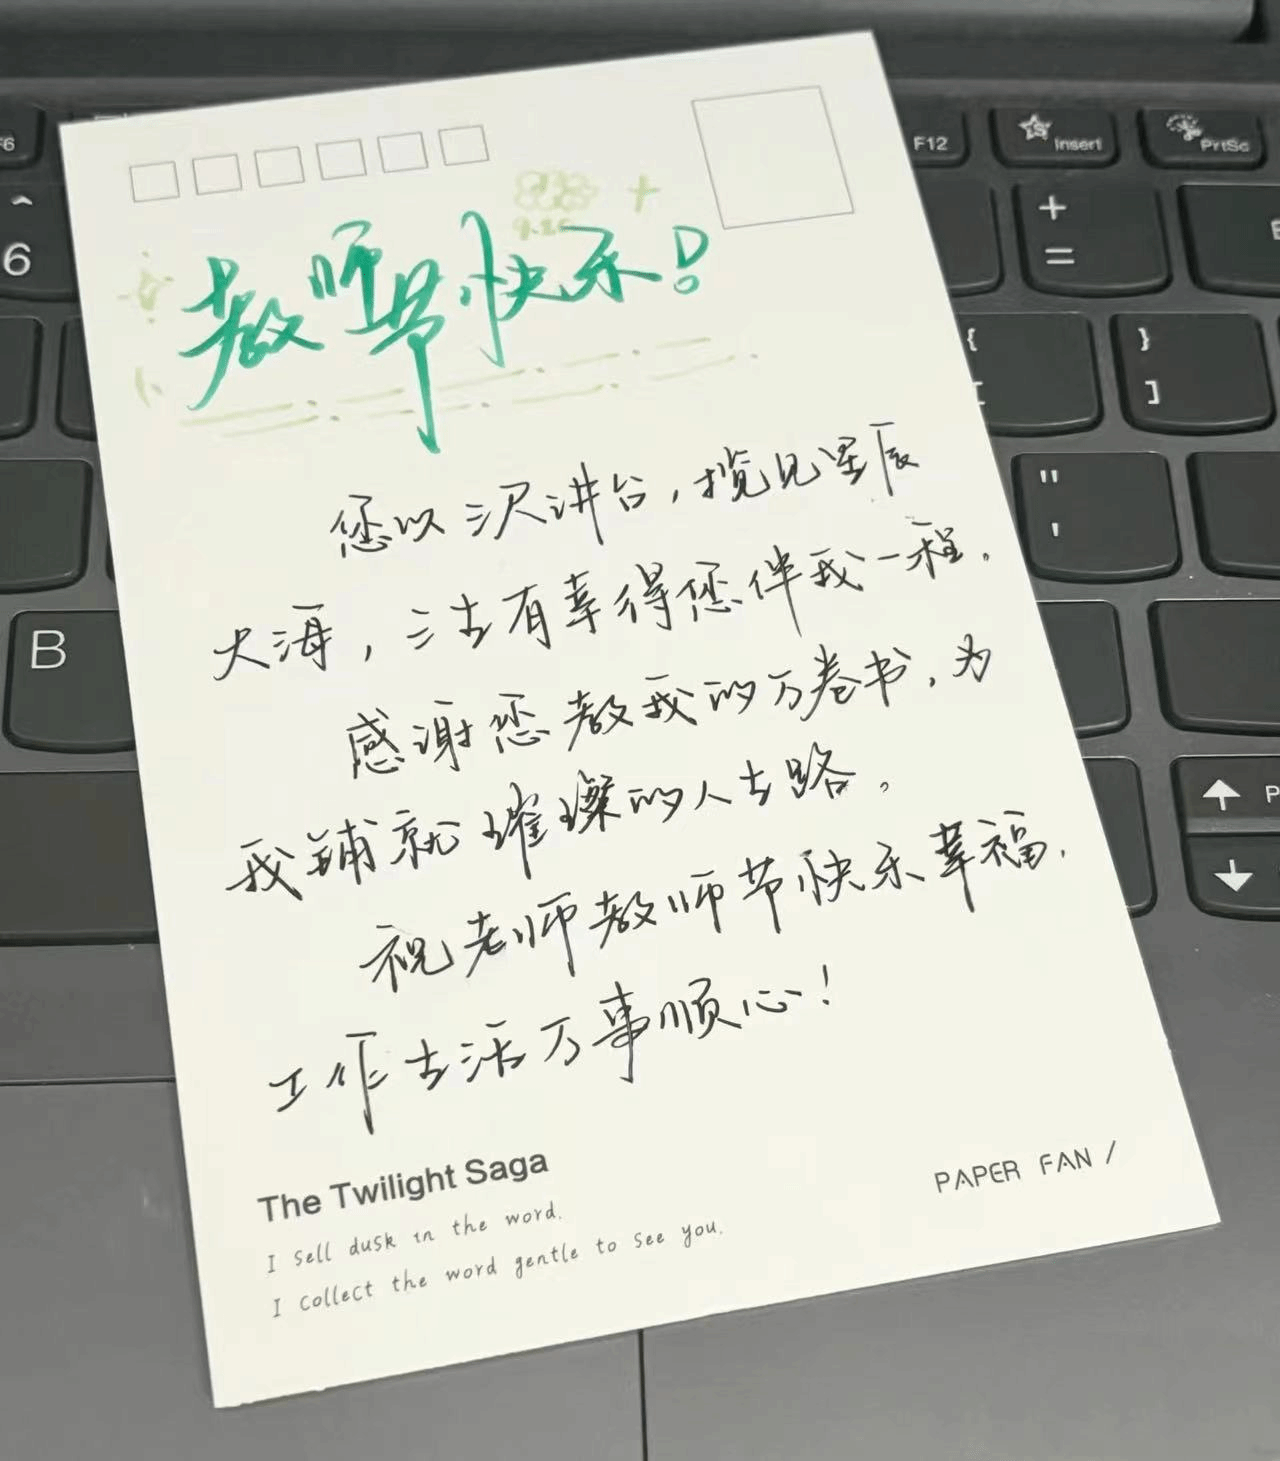 F6
F12
Insert
PrtSc
^
6
+
=
教师节快乐!
{
[
}
]
您以三尺讲台,揽见星辰
"
'
大海,三生有幸得您伴我一程。
B
感谢您教我的万卷书,为
我铺就璀璨的人生路。
祝老师教师节快乐幸福,
工作生活万事顺心!
The Twilight Saga
I sell dusk in the word.
I collect the word gentle to see you.
PAPER FAN /